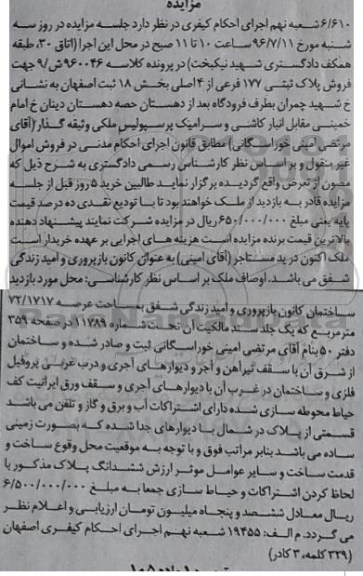 مزایده
۶/۶۱۰ شعبه نهم اجرای احکام کیفری در نظر دارد جلسه مزایده در روز سه
شنبه مورخ ۹۶/۷/۱۱ ساعت ۱۰ تا ۱۱ صبح در محل این اجرا (اتاق ۳۰، طبقه
همکف دادگستری شهید نیکبخت) در پرونده کلاسه ۹۶۰۰۴۶ ش/۹ جهت
فروش پلاک ثبتی ۱۷۷ فرعی از ۴ اصلی بخش ۱۸ ثبت اصفهان به نشانی
خ شهید چمران بطرف فرودگاه بعد از دهستان حصه دهستان دینان خ امام
خمینی مقابل انبار کاشی و سرامیک پرسپولیس ملکی وثیقه گذار (آقای
مرتضی امینی خوراسگانی) مطابق قانون اجرای احکام مدنی در فروش اموال
غیر منقول و بر اساس نظر کارشناس رسمی دادگستری به شرح ذیل که
مصون از تعرض واقع گردیده برگزار نماید طالبین خرید ۵ روز قبل از جلسه
مزایده قادر به بازدید از ملک خواهند بود تا با تودیع نقدی ده درصد قیمت
پایه یعنی مبلغ ۶۵۰/۰۰۰/۰۰۰ ریال در مزایده شرکت نمایند پیشنهاد دهنده
بالاترین قیمت برنده مزایده است هزینه های اجرایی بر عهده خریدار است
ملک اکنون در ید مستاجر (آقای امینی) به عنوان کانون بازپروری و امید زندگی
شفق می باشد. اوصاف ملک بر اساس نظر کارشناسی: محل مورد بازدید
ساختمان کانون بازپروری و امید زندگی شفق بمساحت عرصه ۷۲/۱۷۱۷
مترمربع که یک جلد سند مالکیت آن تحت شماره ۱۱۷۸۹ در صفحه ۳۵۹
دفتر ۵۰ بنام آقای مرتضی امینی خوراسگانی ثبت و صادر شده و ساختمان
از شرق آن با سقف تیرآهن و آجر و دیوارهای آجری و درب غربی پروفیل
فلزی و ساختمان در غرب آن با دیوارهای آجری و سقف ورق ایرانیت کف
حیاط محوطه سازی شده دارای اشتراکات آب و برق و گاز و تلفن می باشد
قسمتی از پلاک در شمال با دیوارهای جدا شده که بصورت زمینی
ساده می باشد بنابر مراتب فوق و با توجه به موقعیت محل وقوع ساخت و
قدمت ساخت و سایر عوامل موثر ارزش ششدانگ پلاک مذکور با
لحاظ کردن اشتراکات و حیاط سازی جمعا به مبلغ ۶/۵۰۰/۰۰۰/۰۰۰
ریال معادل ششصد و پنجاه میلیون تومان ارزیابی و اعلام نظر
می گردد. م الف: ۱۹۴۵۵ شعبه نهم اجرای احکام کیفری اصفهان
(۳۲۹ کلمه، ۳ کادر)